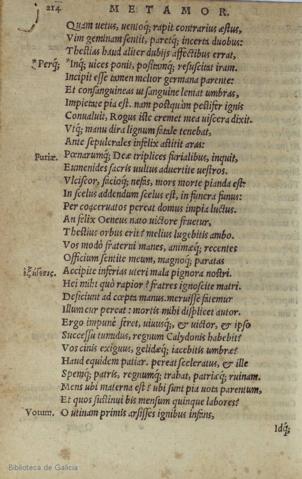 214 METAMOR.
Quam uetus, uentoq; rapit contrarius æstus,
Vim geminam sentit, paretq; incerta duobus:
Thestias haud aliter dubijs affectibus errat,
*Perq; *Inq; uices ponit, positamq; resuscitat iram.
Incipit esse tamen melior germana parente:
Et consanguineas ut sanguine leniat umbras,
Impietate pia est. nam postquàm pestifer ignis
Conualuit, Rogus iste cremet mea uiscera dixit.
Vtq; manu dira lignum fatale tenebat,
Ante sepulcrales infelix astitit aras:
Furiæ. Pœnarumq; Deæ triplices furialibus, inquit,
Eumenides sacris uultus aduertite uestros.
Vlciscor, facioq; nefas, mors morte pianda est:
In scelus addendum scelus est, in funera funus:
Per coaceruatos pereat domus impia luctus.
An felix Oeneus nato uictore fruetur,
Thestius orbus erit? melius lugebitis ambo.
Vos modò fraterni manes, animæq; recentes
Officium sentite meum, magnoq; paratas
Accipite inferias uteri mala pignora nostri.
Hei mihi quò rapior? fratres ignoscite matri.
Deficiunt ad cœpta manus. meruisse fatemur
Illum cur pereat: mortis mihi displicet autor.
Ergo impune feret, uiuusq;, & uictor, & ipso
Successu tumidus, regnum Calydonis habebit?
Vos cinis exiguus, gelidæq; iacebitis umbræ?
Haud equidem patiar. pereat sceleratus, & ille
Spemq; patris, regnumq; trahat, patriæq; ruinam.
Mens ubi materna est? ubi sunt pia uota parentum,
Et quos sustinui bis mensum quinque labores?
Votum. O utinam primis arsisses ignibus infans,
Idq;
Biblioteca de Galicia